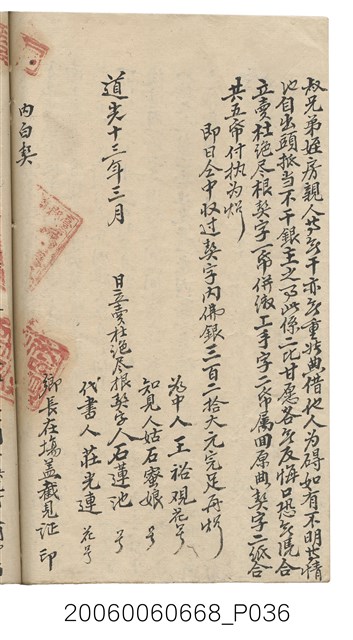 叔兄弟姪房親人等無干亦無重典借他人為碍如有不明等情
池自出頭抵当不干銀主之事此係二比甘愿各無反悔口恐無凴合
立賣杜絕尽根契字一帋併繳上手字一帋属田原典契字二紙合
共五帋付执为炤
即日仝中收过契字內佛銀三百二拾大元完足再炤
為中人王裕观花号
知見人姑石寮娘 号
道光十三年三月 日立賣杜絕尽根契字人石蓮池 号
代書人莊光連 花号
鄉長在塲盖戳見证 印
內白契
20060060668_P036